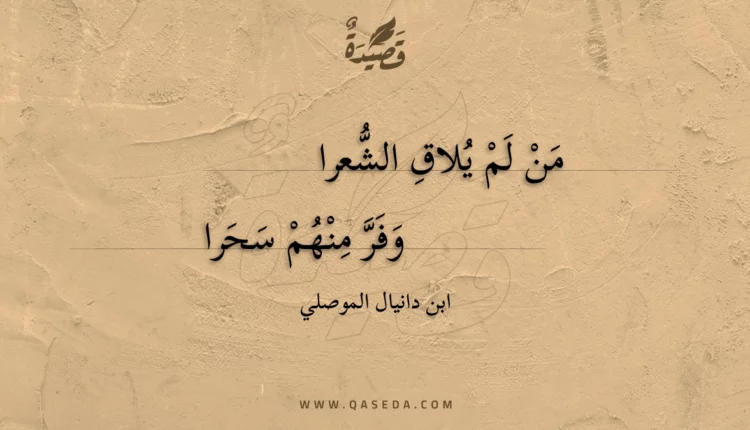 قَصِيْدَةٌ
مَنْ لَمْ يُلاقِ الشُّعرا
وَفَرَّ مِنْهُمْ سَحَرا
ابن دانيال الموصلي
WWW.QASEDA.COM